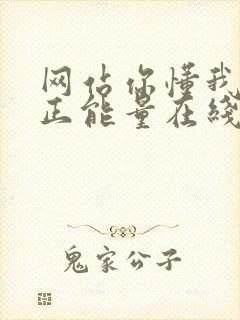 网站你懂我
正能量在线
鬼家公子